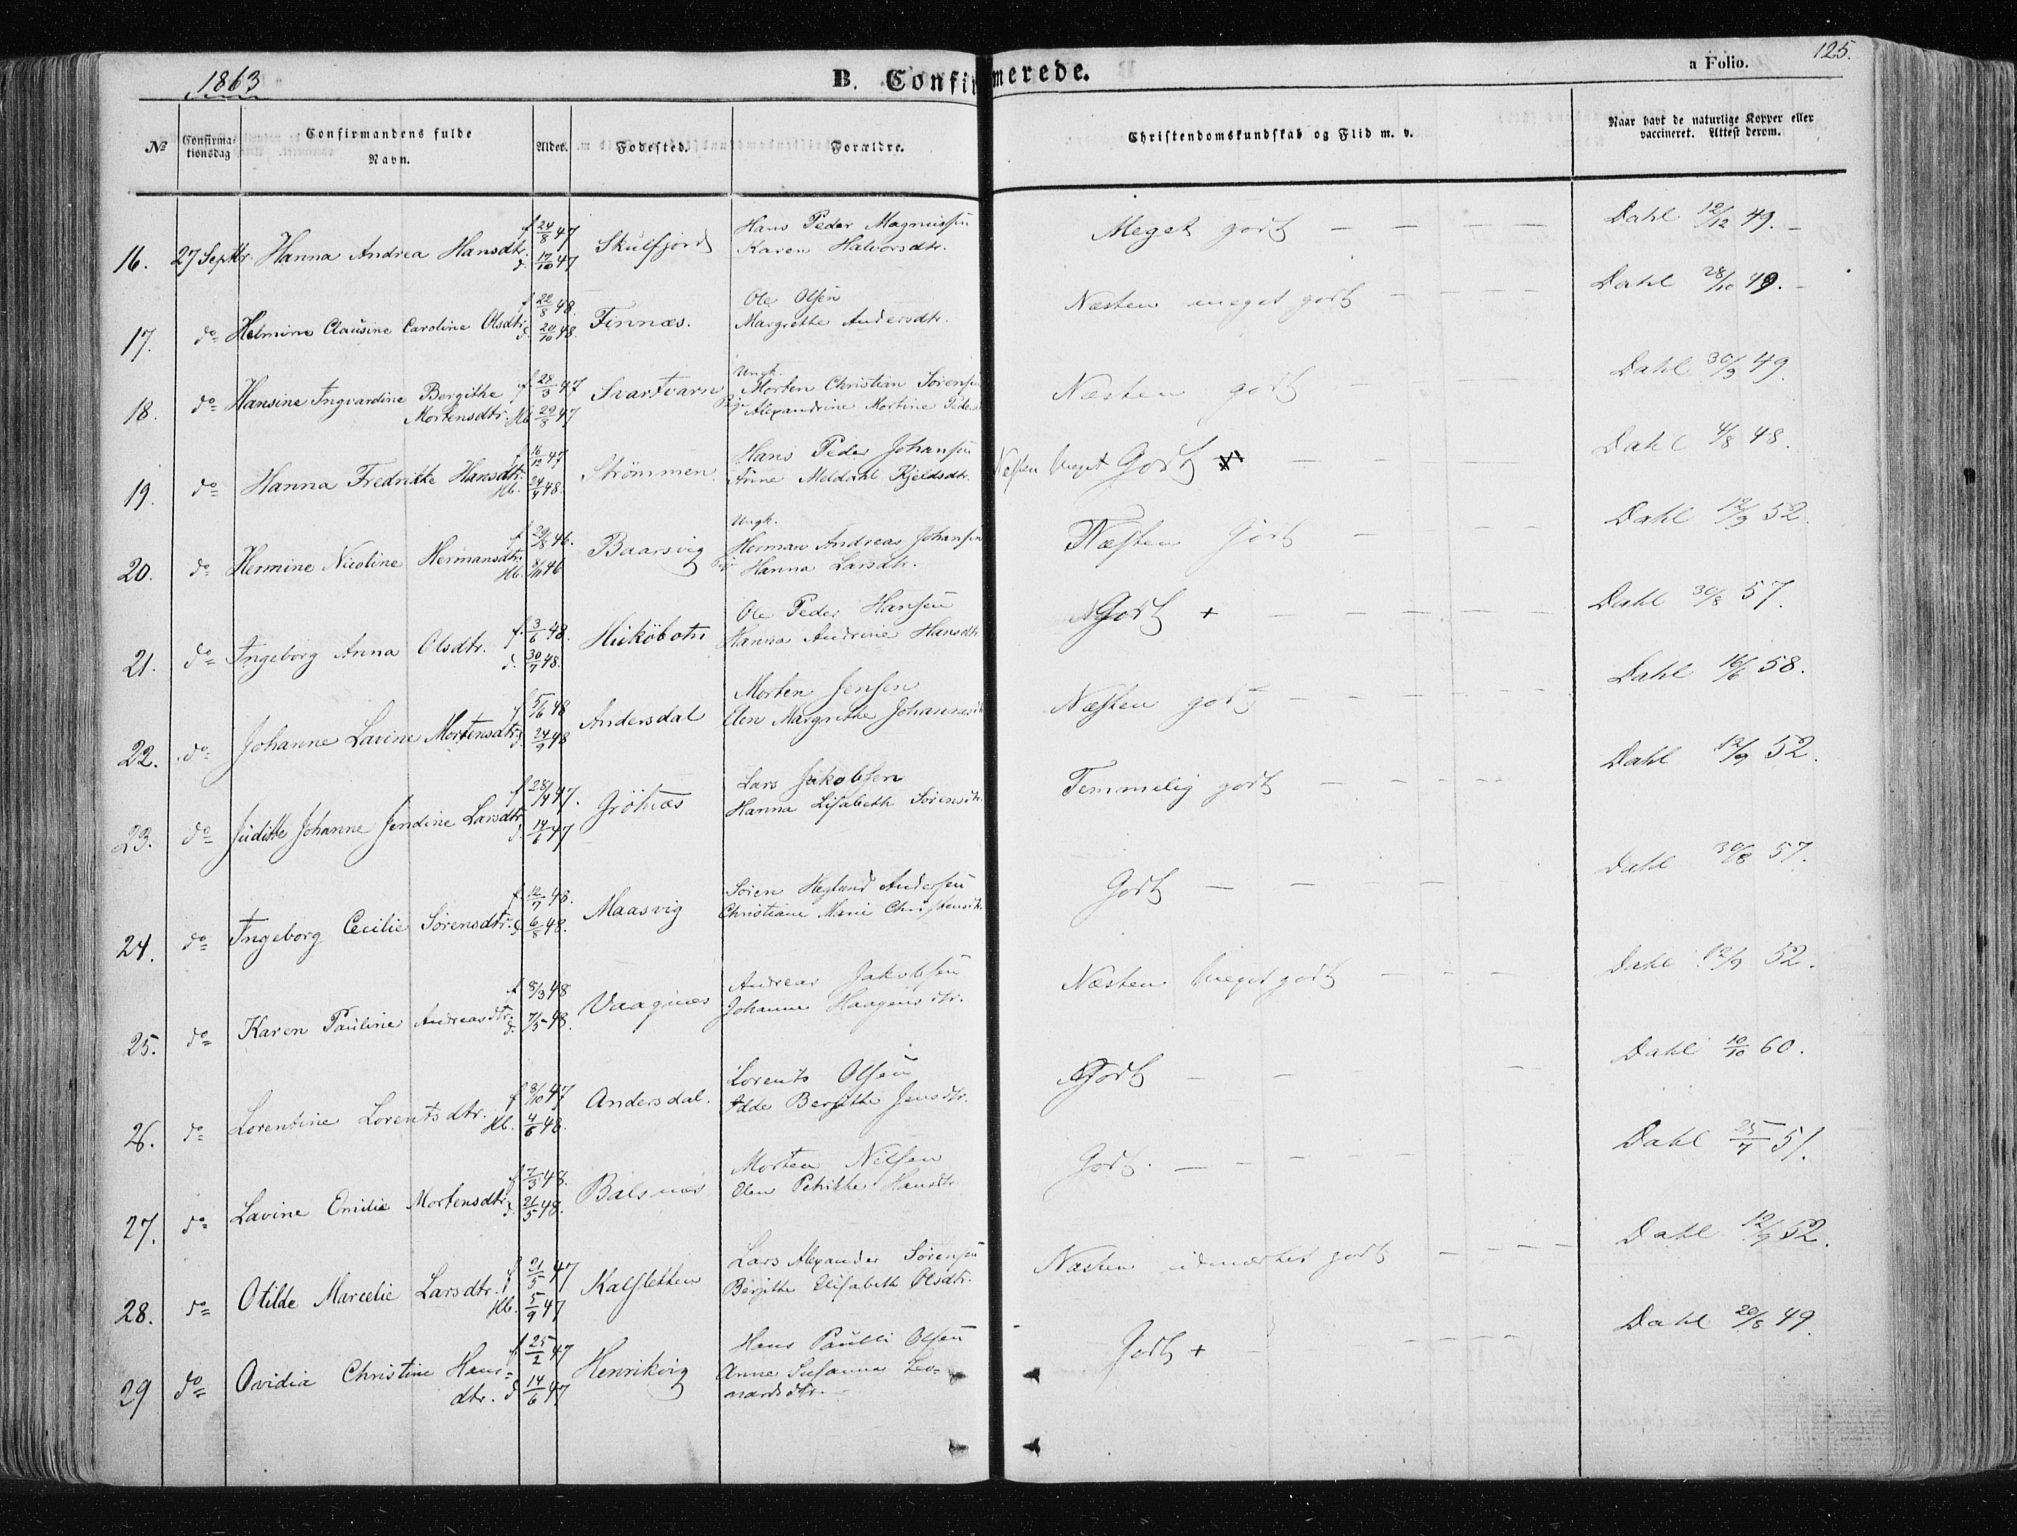 1863
B. Confirmerede.
a Folio.
125.
№
Confirmationsdag
Confirmandens fulde Navn.
Alder.
Fødested.
Forældre.
Christendomskundskab og Flid m. v.
Naar havt de naturlige Kopper eller vaccineret. Attest derom.
f. 24/8 47 Hans Peder Magnussen
16. 27 Septbr. Hanna Andrea Hansdtr. d. 17/10 47 Skulsfjord Karen Halvorsdtr. Meget godt — — — — Dahl 12/12 49.
f. 22/8 48. Ole Olsen
17. do Helmine Clausine Caroline Olsdtr. d. 20/10 48. Finnæs. Margrethe Andersdtr. Næsten meget godt — — — — Dahl 28/10 49.
Ungk.
f. 28/3 47 Morten Christian Sørensen
18. do Hansine Ingvardine Bergithe Mortensdtr. Hb. 29/8 47 Svartvare Pige Alexandrine Martine Peders Næsten godt — — — Dahl 30/9 49.
f. 16/12 47 Hans Peder Johansen
19. do Hanna Fredrikke Hansdtr. Hb. 24/4 48. Strømmen Anne Meldahl Kjeldsdtr. Næsten meget Godt — — — Dahl 4/8 48.
Ungk.
f. 29/8 46. Herman Andreas Johansen
20. do Hermine Nicoline Hermansdtr. Hb. 46 Baarsvig Hanna Larsdtr. Næsten Godt — — — Dahl 12/9 52.
f. 3/6 48. Ole Peder Hansen
21. do Ingeborg Anna Olsdtr. d. 30/7 48. Hukøbotn Hanna Andrine Hansdtr. Godt + — — — Dahl 30/8 57.
f. 5/6 48 Morten Jensen
22. do Johanne Lavine Mortensdtr. d. 24/9 48 Andersdal Elen Margrethe Johannesdtr Næsten godt — — — Dahl 16/6 58.
f. 28/4 47. Lars Jakobsen
23. do Judithe Johanne Jendine Larsdtr. d. 14/6 47 Grötnæs Hanna Lisabeth Sørensdtr. Temmelig godt — — — Dahl 12/9 52.
f. 12/7 48. Søren Hegland Andersen
24. do Ingeborg Cecilie Sørensdtr. d. 6/8 48. Maasvig Christiane Marie Christensdtr. Godt — — — Dahl 30/8 57.
f. 8/3 48 Andreas Jakobsen
25. do Karen Pauline Andreasdtr. d. 7/5 48. Vaagnæs Johanne Haagensdtr. Næsten meget godt — — — Dahl 12/9 52.
f. 8/10 47 Lorents Olsen
26. do Lorentine Lorentsdtr. Hb. 4/6 48. Andersdal. Adde Bergithe Jensdtr. Godt — — — Dahl 10/10 60.
f. 7/3 48. Morten Nilsen
27. do Lavine Emilie Mortensdtr. d. 21/5 48. Balsnæs Elen Petrikke Hansdtr. Godt. — — — Dahl 25/7 51.
f. 21/5 47 Lars Alexander Sørensen
28. do Otilde Marcelie Larsdtr. Hb. 5/9 47 Kalsletten Bergithe Elisabeth Olsdtr. Næsten udmærket godt — — — Dahl 12/9 52.
f. 25/2 47 Hans Paulli Olsen
29 do Ovidia Christine Hansdtr. d. 14/6 47 Henrikvig Anne Susanna Leonardsdtr. Godt + — — — Dahl 20/8 49.